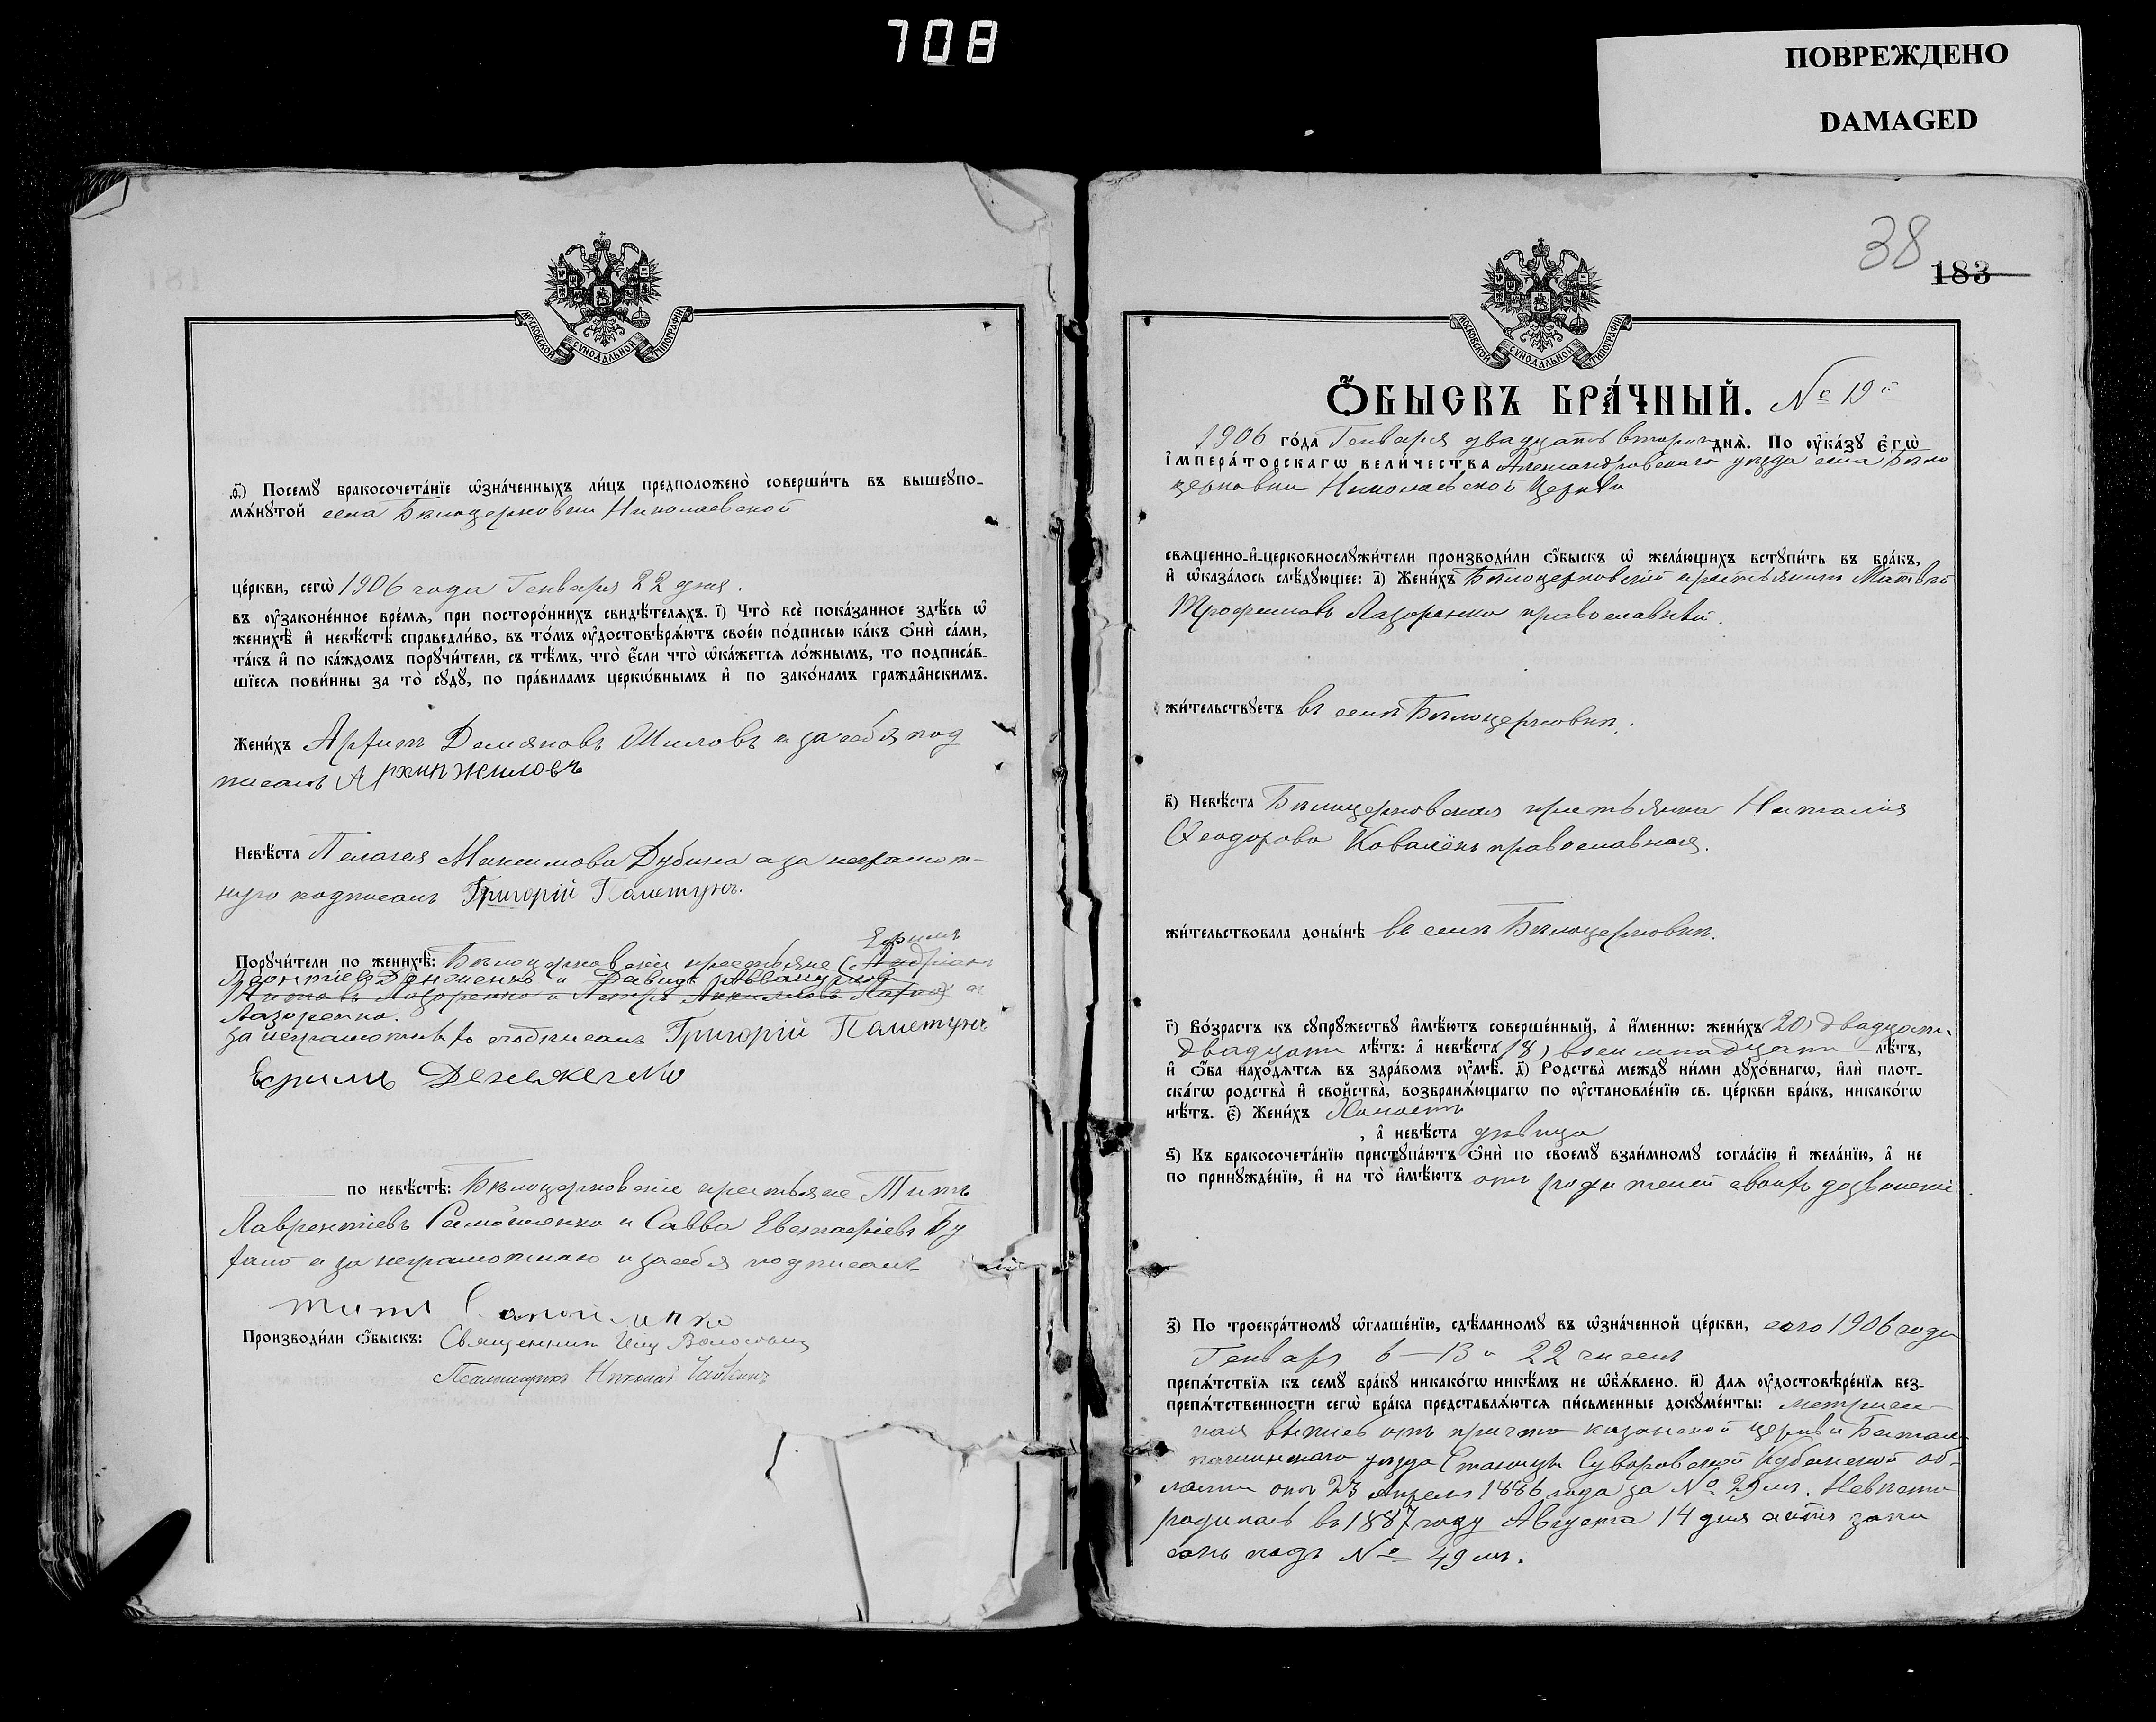 708
ПОВРЕЖДЕНО
DAMAGED
МОСКОВСКОЙ СѴНОДАЛЬНОЙ ТИПОГРАФІИ
Посемꙋ бракосочета́нїе ѡ҆зна́ченныхъ ли́цъ предположено̀ соверши́ть въ вышеꙋпо-
мѧ́нꙋтой села Бѣлоцерковки Николаевской
це́ркви, сегѡ̀ 1906 года Генваря 22 дня.
въ ᲂу҆зако́ненное вре́мѧ, при посторо́ннихъ свидѣ́телѧхъ. і҃) Что̀ всѐ пока́занное здѣ́сь ѡ҆
женихѣ̀ и҆ невѣ́стѣ справедли́во, въ то́мъ ᲂу҆достовѣрѧ́ютъ свое́ю по́дписью ка́къ ѻ҆нѝ са́ми,
та́къ и҆ по ка́ждомъ порꙋчи́тели, съ тѣ́мъ, что̀ є҆́сли что̀ ѡ҆ка́жетсѧ ло́жнымъ, то подписа́в-
шїесѧ пови́нны за то̀ сꙋдꙋ̀, по пра́виламъ церко́внымъ и҆ по зако́намъ гражда́нскимъ.
Жени́хъ Архип Демяновъ Шиловъ а за себя под
писалъ Архип Жиловъ
Невѣ́ста Пелагея Максимова Дубина а за неграмот-
ную подписалъ Григорій Палетунъ.
Ефимъ
Порꙋчи́тели по женихѣ̀: Бѣлоцерковскіе крестьяне (Андріан
Леонтіев Денженко и Давидъ
Лазоренко и Петръ
Лазоренко.
за неграмотныхъ подписалъ Григорій Палетунъ
Ефимъ Денеженко
по невѣ́стѣ: Бѣлоцерковскіе крестьяне Титъ
Лаврентіевъ Самойленко и Савва Евстафіевъ Бу
а за неграмотнаго и за себя подписалъ
Титъ Самойленко
Производи́ли ѻ҆́быскъ: Священникъ
Псаломщикъ Николай
38
183
МОСКОВСКОЙ СѴНОДАЛЬНОЙ ТИПОГРАФІИ
Ѻ҆́БЫСКЪ БРА́ЧНЫЙ. № 19й
1906 го́да Генваря двадцать второго днѧ̀. По ᲂу҆ка́зꙋ є҆гѡ̀
і҆мпера́торскагѡ вели́чества Александровскаго уезда села Бѣло
церковки Николаевской Церкви
свѧщенно-и҆-церковнослꙋжи́тели производи́ли ѻ҆́быскъ ѡ҆ жела́ющихъ встꙋпи́ть въ бра́къ,
и҆ ѡ҆каза́лось слѣ́дꙋющее: а҃) Жени́хъ Бѣлоцерковскій крестьянинъ Матвѣй
Трофимовъ Лазоренко православный.
жи́тельствꙋетъ въ селѣ Бѣлоцерковкѣ.
в҃) Невѣ́ста Бѣлоцерковская крестьянка Наталия
Ѳеодорова Ковалёнъ православная.
жи́тельствовала доны́нѣ въ селѣ Бѣлоцерковкѣ.
г҃) Во́зрастъ къ сꙋпрꙋ́жествꙋ и҆мѣ́ютъ соверше́нный, а҆ и҆́менно: жени́хъ (20) двадцати
двадцати лѣ́тъ: а҆ невѣ́ста (18) восемнадцати лѣ́тъ,
и҆ ѻ҆́ба нахо́дѧтсѧ въ здра́вомъ ᲂу҆мѣ̀. д҃) Родства̀ междꙋ̀ ни́ми дꙋхо́внагѡ, и҆лѝ плот-
ска́гѡ родства̀ и҆ сво́йства̀, возбранѧ́ющагѡ по ᲂу҆становле́нїю св. це́ркви бра́къ, никако́гѡ
нѣ́тъ. є҃) Жени́хъ Холостъ
, а҆ невѣ́ста дѣвица
ѕ҃) Къ бракосочета́нїю пристꙋпа́ютъ ѻ҆нѝ по своемꙋ̀ взаи́мномꙋ согла́сїю и҆ жела́нїю, а҆ не
по принꙋжде́нїю, и҆ на то̀ и҆мѣ́ютъ отъ родителей своихъ дозволеніе
з҃) По троекра́тномꙋ ѡ҆глаше́нїю, сдѣ́ланномꙋ въ ѡ҆зна́ченной це́ркви, сего 1906 года
Генваря 6 – 13 и 22 чиселъ
препѧ́тствїѧ къ семꙋ̀ бра́кꙋ никако́гѡ никѣ́мъ не ѡ҆б̾ѧ́влено. и҃) Длѧ ᲂу҆достовѣре́нїѧ без-
препѧ́тственности сегѡ̀ бра́ка представлѧ́ютсѧ пи́сьменные докꙋме́нты: метричес-
кая выпись отъ причта казанской церкви Батал
пашинскаго уезда Станицы Суворовской Кубанской об-
ласти отъ 23 апреля 1886 года за № 29 мъ. Невѣста
родилась въ 1887 году Августа 14 дня актъ запи
санъ подъ № 49 мъ.